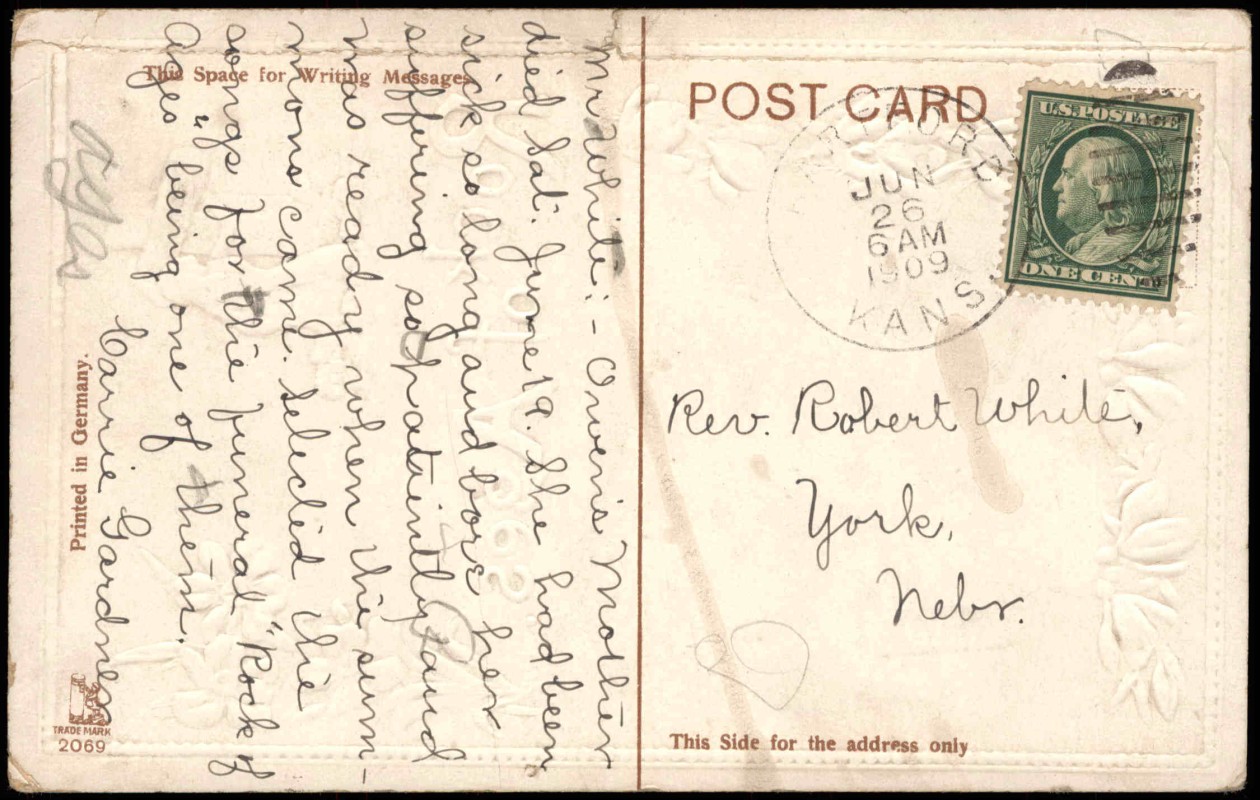 This Space for Writing Messages
Mr White:- Owen's Mother
died Sat. June 19. She had been
sick so long and bore her
suffering so patiently and
was ready when the sum-
mons came. Selected the
songs for the funeral "Rock of
Ages" being one of them.
Carrie Gardner
Printed in Germany.
TRADE MARK
2069
POST CARD
JUN
26
6 AM
1909
KANS.
U.S. POSTAGE
ONE CENT
Rev. Robert White,
York,
Nebr.
This Side for the address only